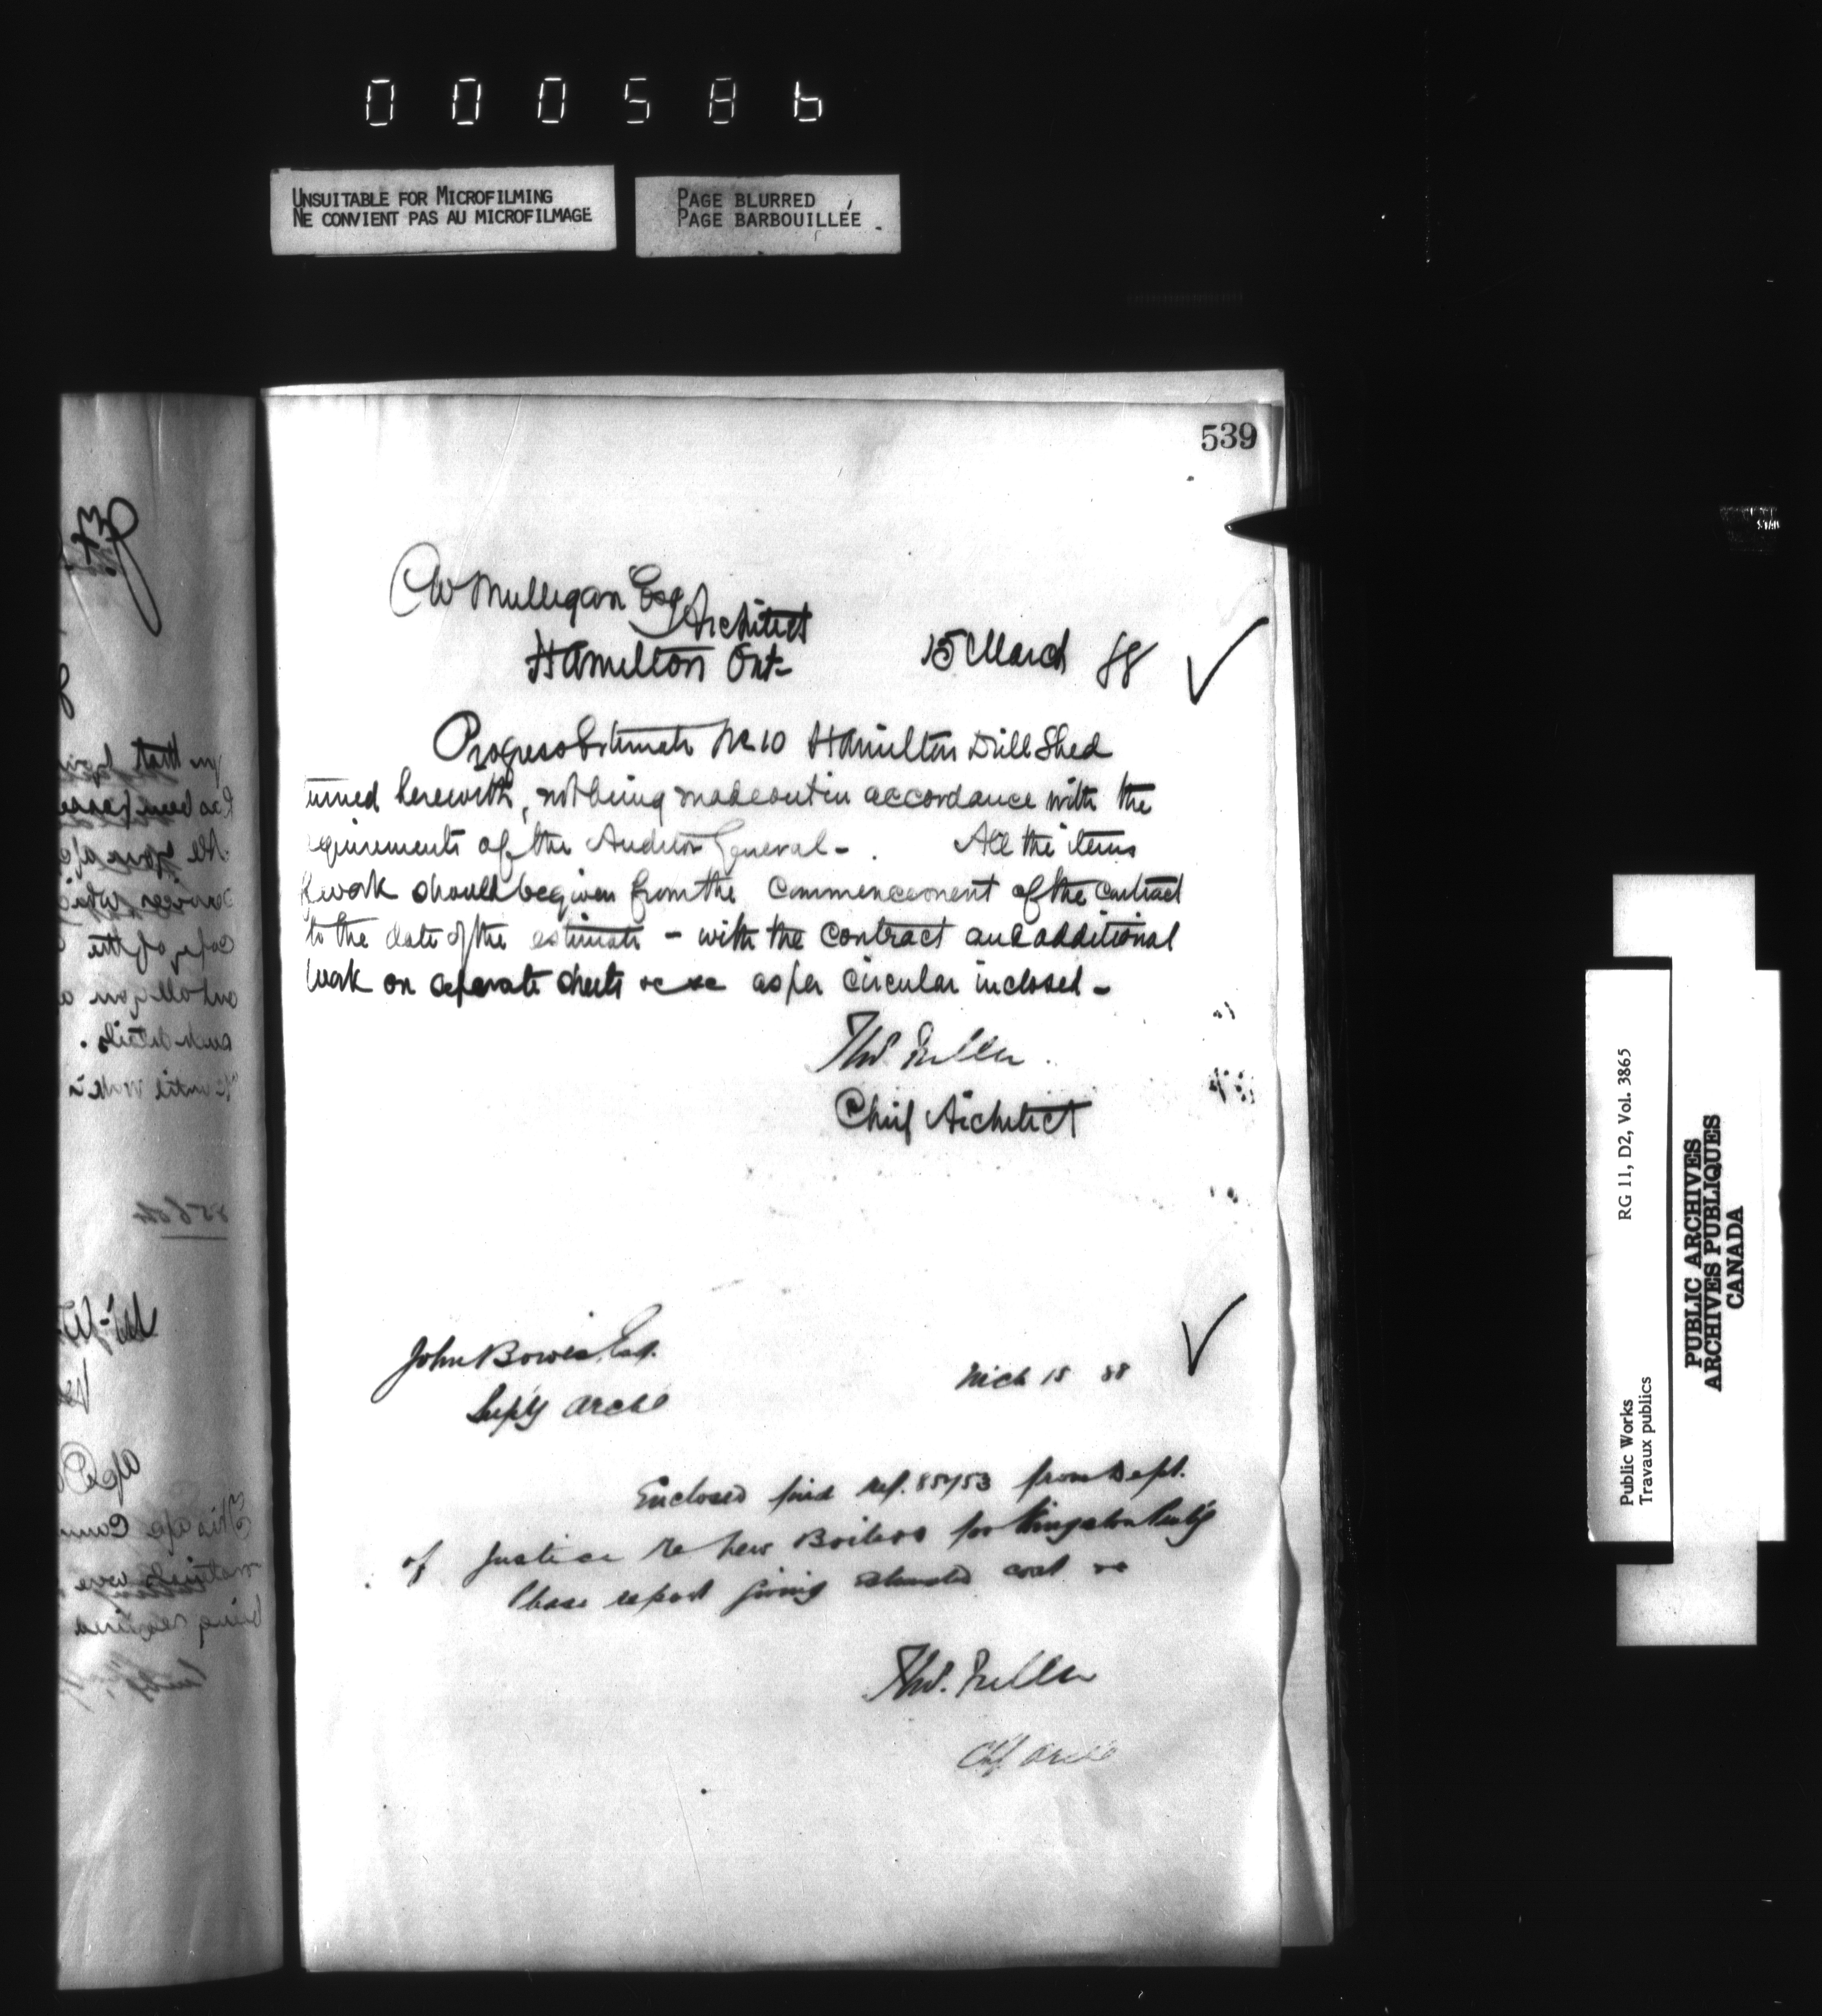 000586
UNSUITABLE FOR MICROFILMING
NE CONVIENT PAS AU MICROFILMAGE
PAGE BLURRED
PAGE BARBOUILLÉE
539
CW Mulligan Esq
Architect
Hamilton Ont-
15 March 88
Progress Estimate No 10 Hamilton Drill Shed
urned herewith, not being made out in accordance with the
equirements of the Auditor General - . All the items
f work should be given from the commencement of the contract
to the date of the estimate - with the contract and additional
work on separate sheets &c &c as per circular inclosed -
Thos. Fuller
Chief Architect
John Bowes, Esq.
Supty Archt
Mch 15 88
Enclosed find ref. 85753 from Dept.
of Justice re new Boilers for Kingston Penty
Please report giving estimated cost &c
Thos. Fuller
Chf Archt
Public Works
Travaux publics
RG 11, D2, Vol. 3865
PUBLIC ARCHIVES
ARCHIVES PUBLIQUES
CANADA